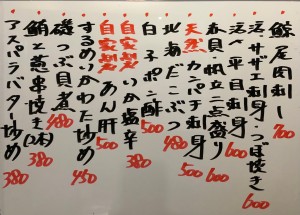 鯨尾肉刺し 700
活サザエ刺身・つぼ焼き 600
活〆平目刺身 600
赤貝・帆立二点盛り 600
天然カンパチ刺身 500
北海だこぶつ 480
白子ポン酢 500
自家製いか塩辛 380
自家製あん肝 500
するめいかわた炒め 450
磯つぶ貝煮 480
鮪と葱串焼き(2本) 380
アスパラバター炒め 380